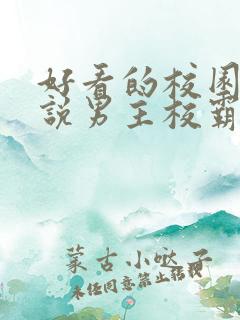 好看的校园
說男主校霸
蒙古小哒子
未经同意禁止转载